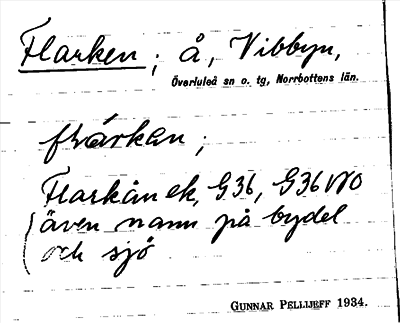 Flarken; å, Vibbyn,
Överluleå sn o. tg, Norrbottens län.
flárkən;
Flarkån ek, G36, G36VNO
(även namn på bydel
och sjö
GUNNAR PELLIJEFF 1934.